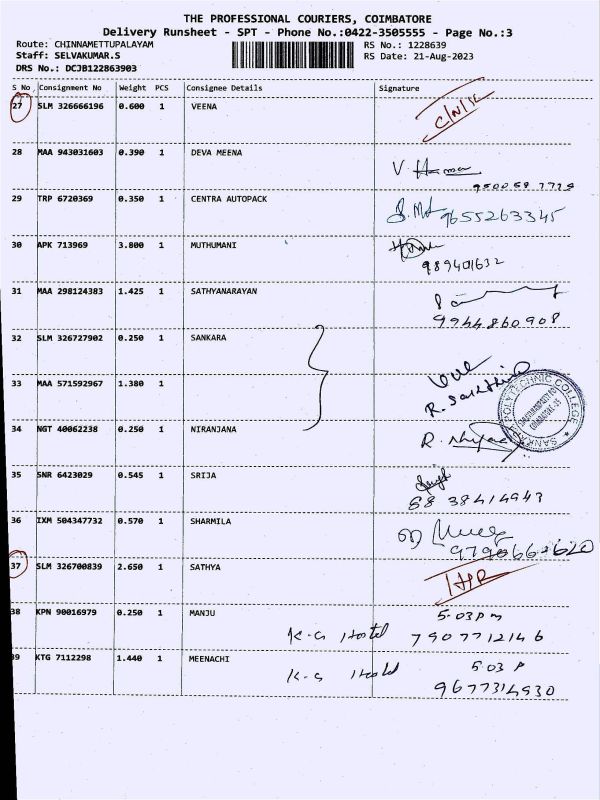 THE PROFESSIONAL COURIERS, COIMBATORE
Delivery Runsheet - SPT - Phone No.:0422-3505555 - Page No.:3
Route: CHINNAMETTUPALAYAM
Staff: SELVAKUMAR.S
DRS No.: DCJB122863903
RS No.: 1228639
RS Date: 21-Aug-2023
S No Consignment No Weight PCS Consignee Details Signature
27 SLM 326666196 0.600 1 VEENA
28 MAA 943031603 0.390 1 DEVA MEENA
29 TRP 6720369 0.350 1 CENTRA AUTOPACK 9655263345
30 APK 713969 3.800 1 MUTHUMANI
989401632
31 MAA 298124383 1.425 1 SATHYANARAYAN
9944860908
32 SLM 326727902 0.250 1 SANKARA
33 MAA 571592967 1.380 1
34 NGT 40062238 0.250 1 NIRANJANA
POLYTECHNIC COLLEGE
35 SNR 6423029 0.545 1 SRIJA
88 38414943
36 IXM 504347732 0.570 1 SHARMILA
37 SLM 326700839 2.650 1 SATHYA
38 KPN 90016979 0.250 1 MANJU 5.03 Pm
K-G Hostel 7907712146
39 KTG 7112298 1.440 1 MEENACHI 5.03 P
K-G 9677314930